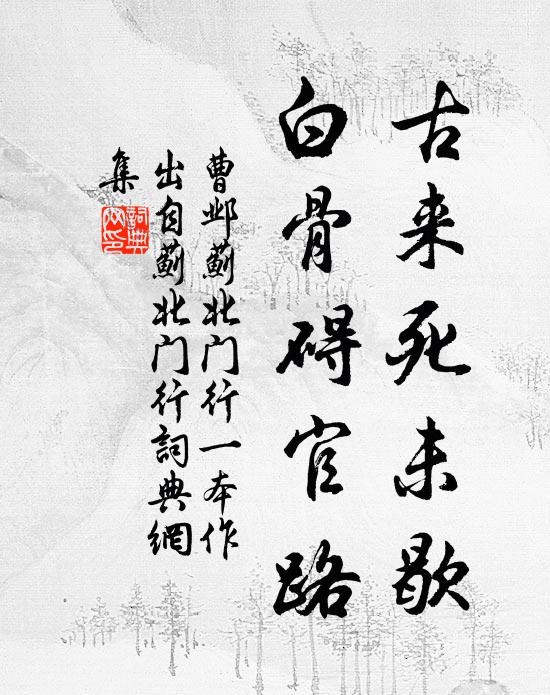 古来死未歇
白骨碍官路
曹邺蓟北门行一本作
出自蓟北门行詞典網
集
詞典
网印